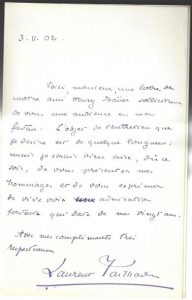 3. II. 02.
Voici, monsieur, une lettre de
notre ami Henry sollicitant
de vous une audience en ma
faveur. L'objet de l'entretien que
je désire est de quelque longueur:
mais je serais bien aise, dès ce
soir, de vous présenter mes
hommages et de vous exprimer
de vive voix une admiration
fervente qui date de ma vingt ans.
Avec mes compliments très
Laurent Tailhade